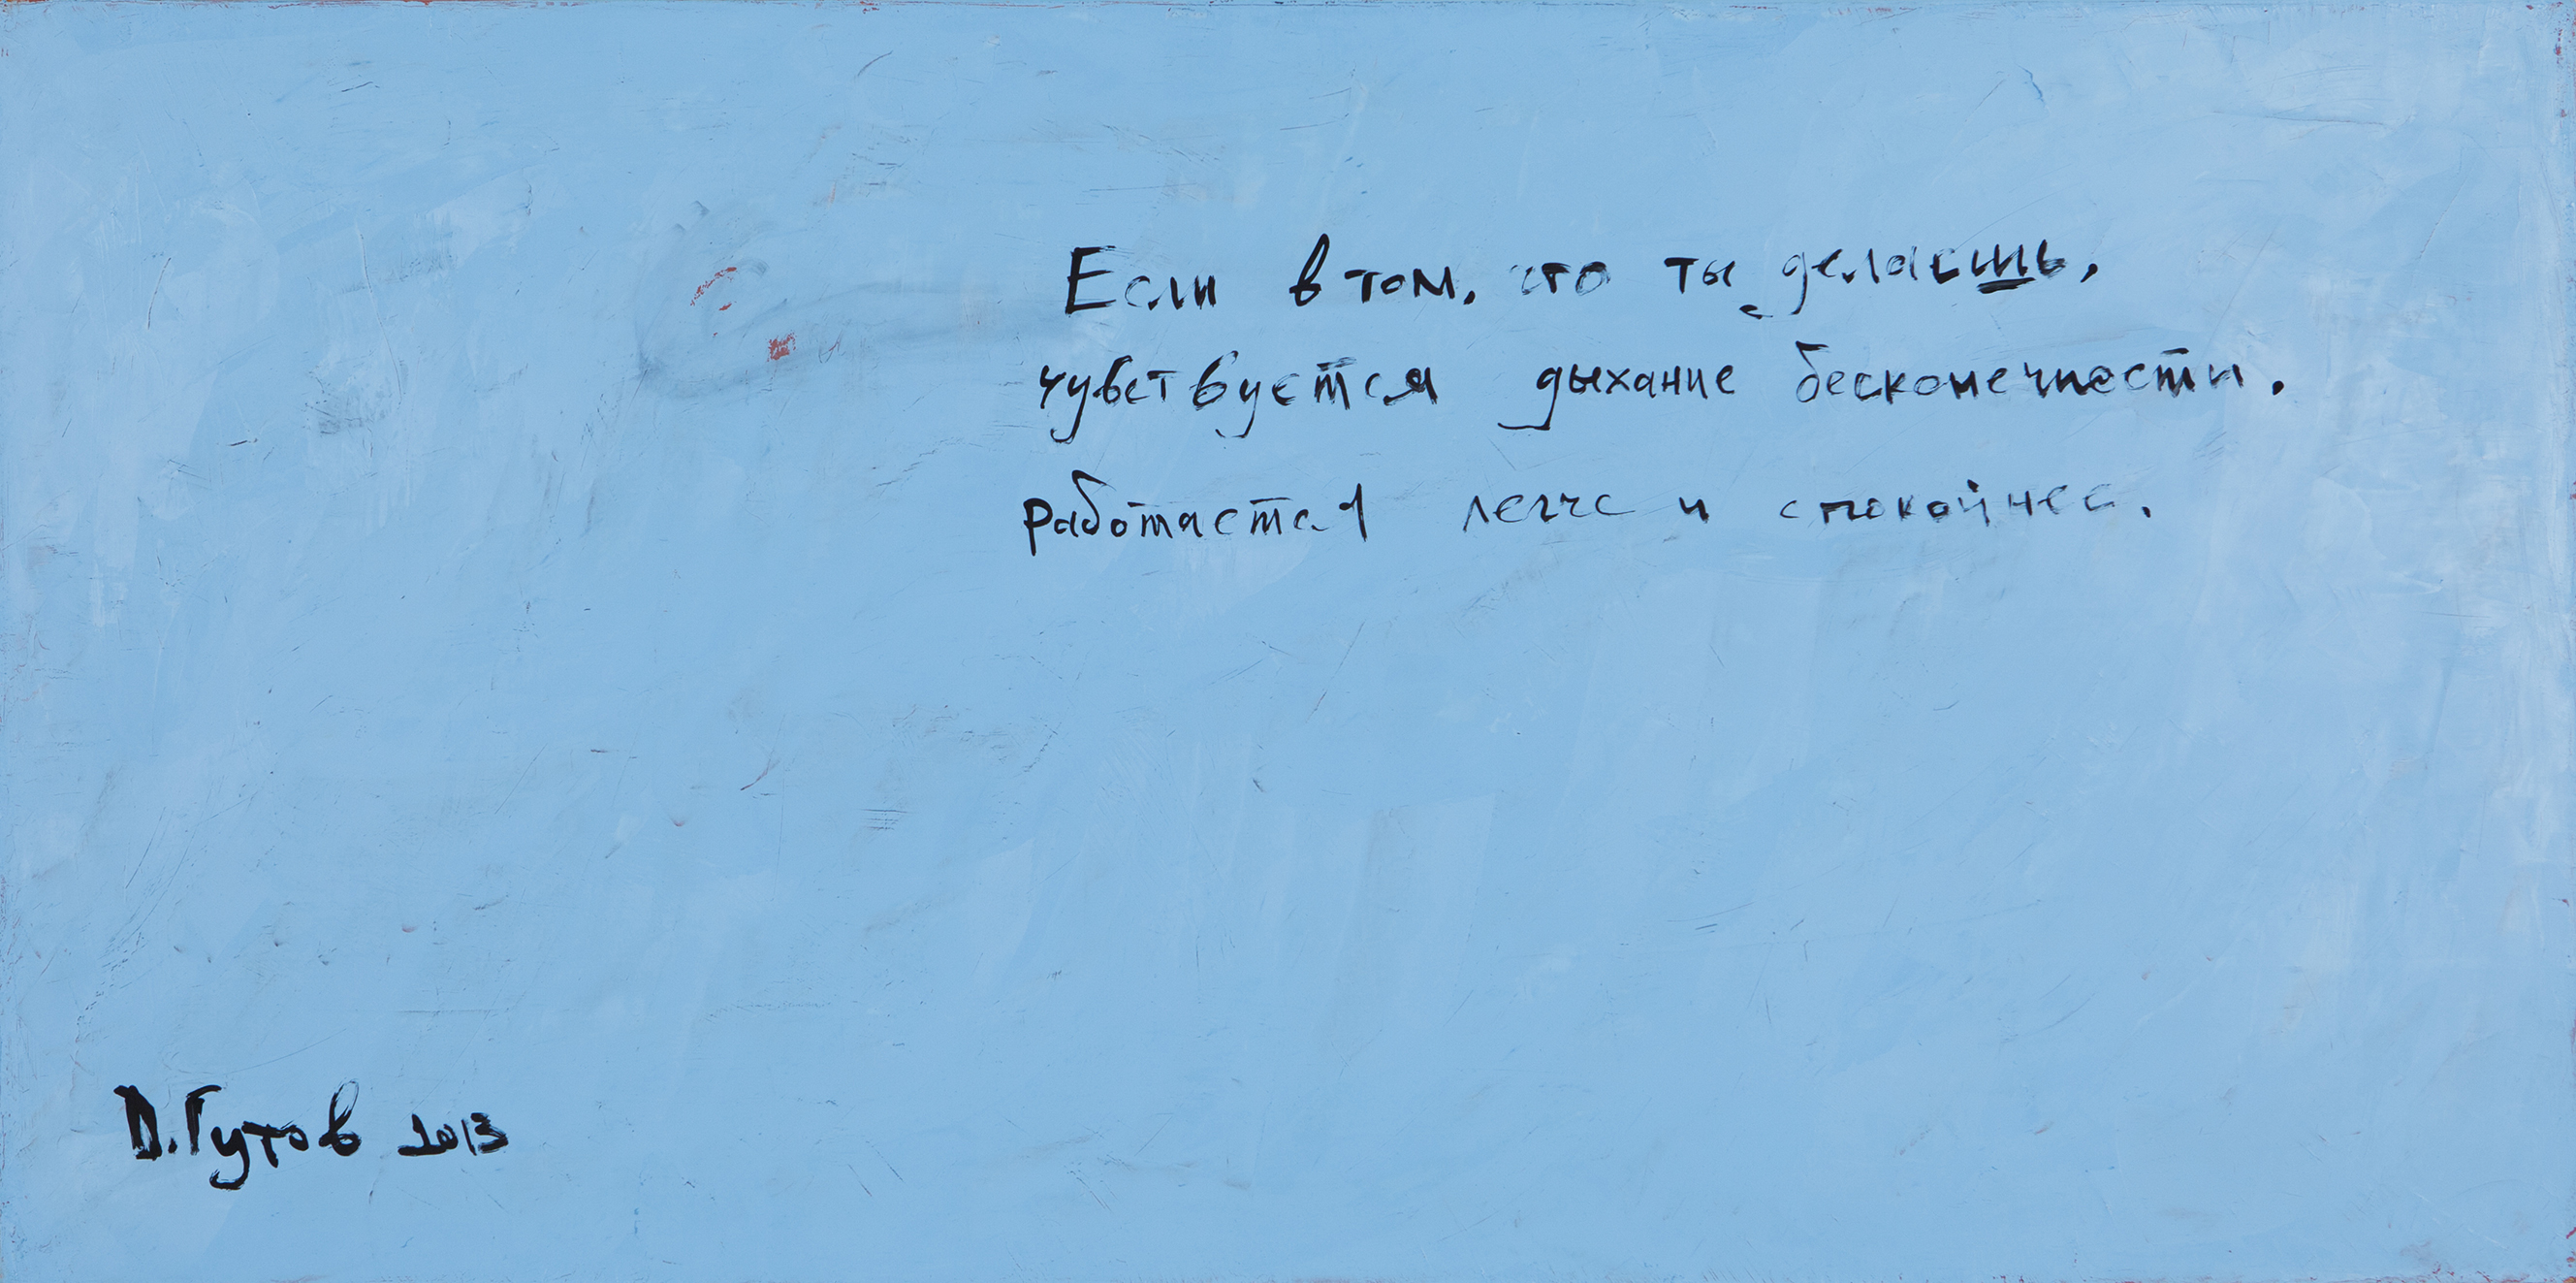 Если в том, что ты делаешь,
чувствуется дыхание бесконечности,
работается легче и спокойнее.
Д. Гутов 2013